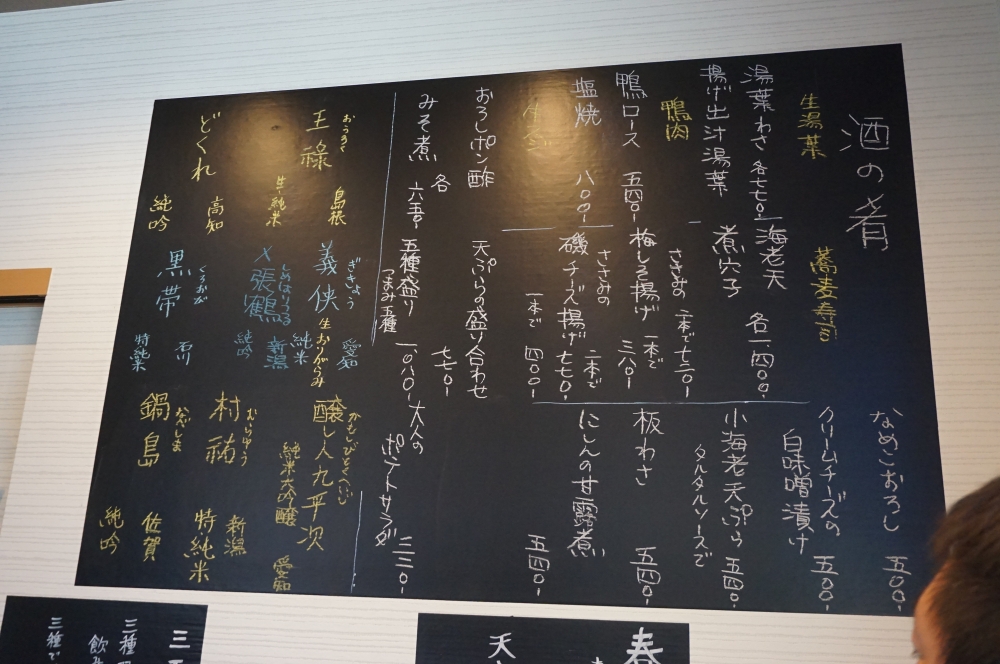 酒の肴
生湯葉
湯葉わさ 各七七〇-
揚げ出汁湯葉
鴨肉
鴨ロース 五四〇-
塩焼 八〇〇-
おろしポン酢
みそ煮 各 六五〇-
蕎麦寿司
海老天 各一、四〇〇-
煮穴子
ささみの 二本で七三〇-
梅しそ揚げ 一本で 三八〇-
ささみの 二本で
磯チーズ揚げ 七七〇-
一本で 四〇〇-
天ぷらの盛り合わせ
七七〇-
五種盛り
つまみ五種 一、〇八〇-
なめこおろし 五〇〇-
クリームチーズの
白味噌漬け 五〇〇-
小海老天ぷら 五四〇-
タルタルソースで
板わさ 五四〇-
にしんの甘露煮 五四〇-
大人の
ポテトサラダ 三三〇-
おうろく
王祿 島根
生・純米
どくれ 高知
純吟
ぎきょう
義侠 愛知
生 おりがらみ 純米
しめはりつる
〆張鶴 新潟
純吟
くろおび
黒帯 石川
特純米
かもしびとくへいじ
醸し人九平次
純米大吟醸 愛知
むらゆう
村祐 新潟
特純米
なべしま
鍋島 佐賀
純吟
春
天
三
三種
飲み
三種で